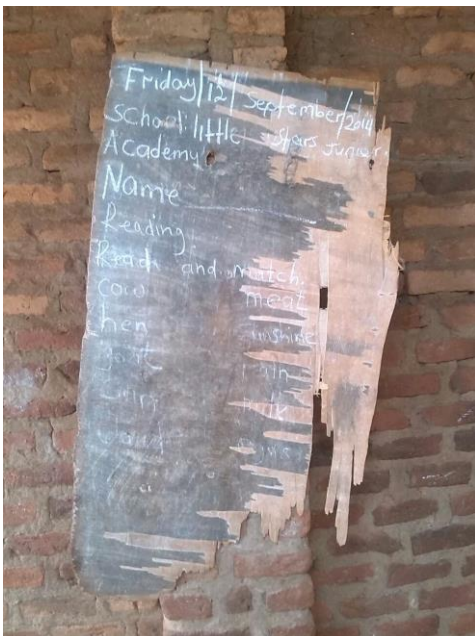 Friday/12/September/2014
School: little stars junior
Academy
Name
Reading
Read and match.
cow meat
hen sunshine
goat rain
milk
cloud